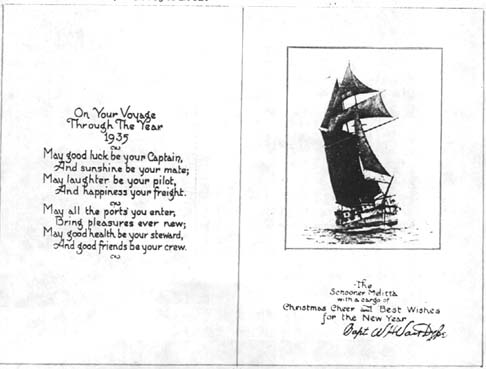 On Your Voyage
Through The Year
1935
May good luck be your Captain,
And sunshine be your mate;
May laughter be your pilot,
And happiness your freight.
May all the ports you enter,
Bring pleasures ever new;
May good health be your steward,
And good friends be your crew.
The
Schooner Melitta
with a cargo of
Christmas Cheer and Best Wishes
for the New Year
Capt W H Van Dyke